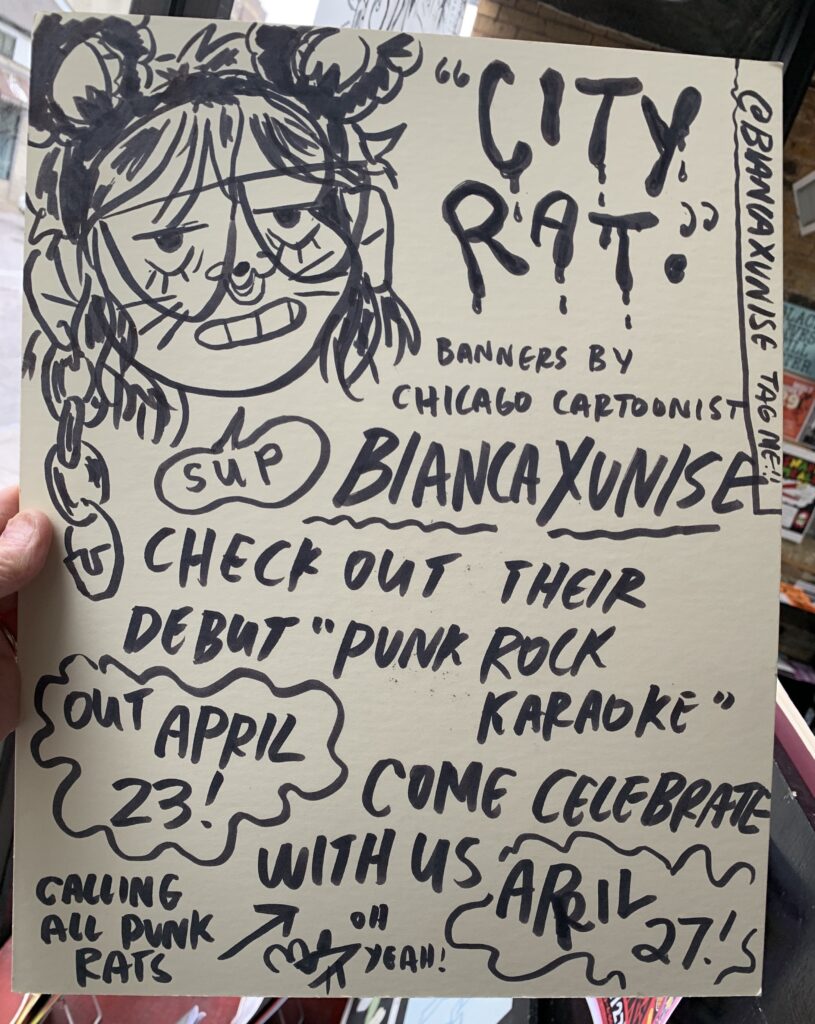 "CITY
RAT."
@BIANCAXUNISE TAG ME!!
BANNERS BY
CHICAGO CARTOONIST
SUP
BIANCA XUNISE
CHECK OUT THEIR
DEBUT "PUNK ROCK
KARAOKE"
OUT APRIL
23!
COME CELEBRATE
WITH US
APRIL
27!
CALLING
ALL PUNK
RATS
OH
YEAH!